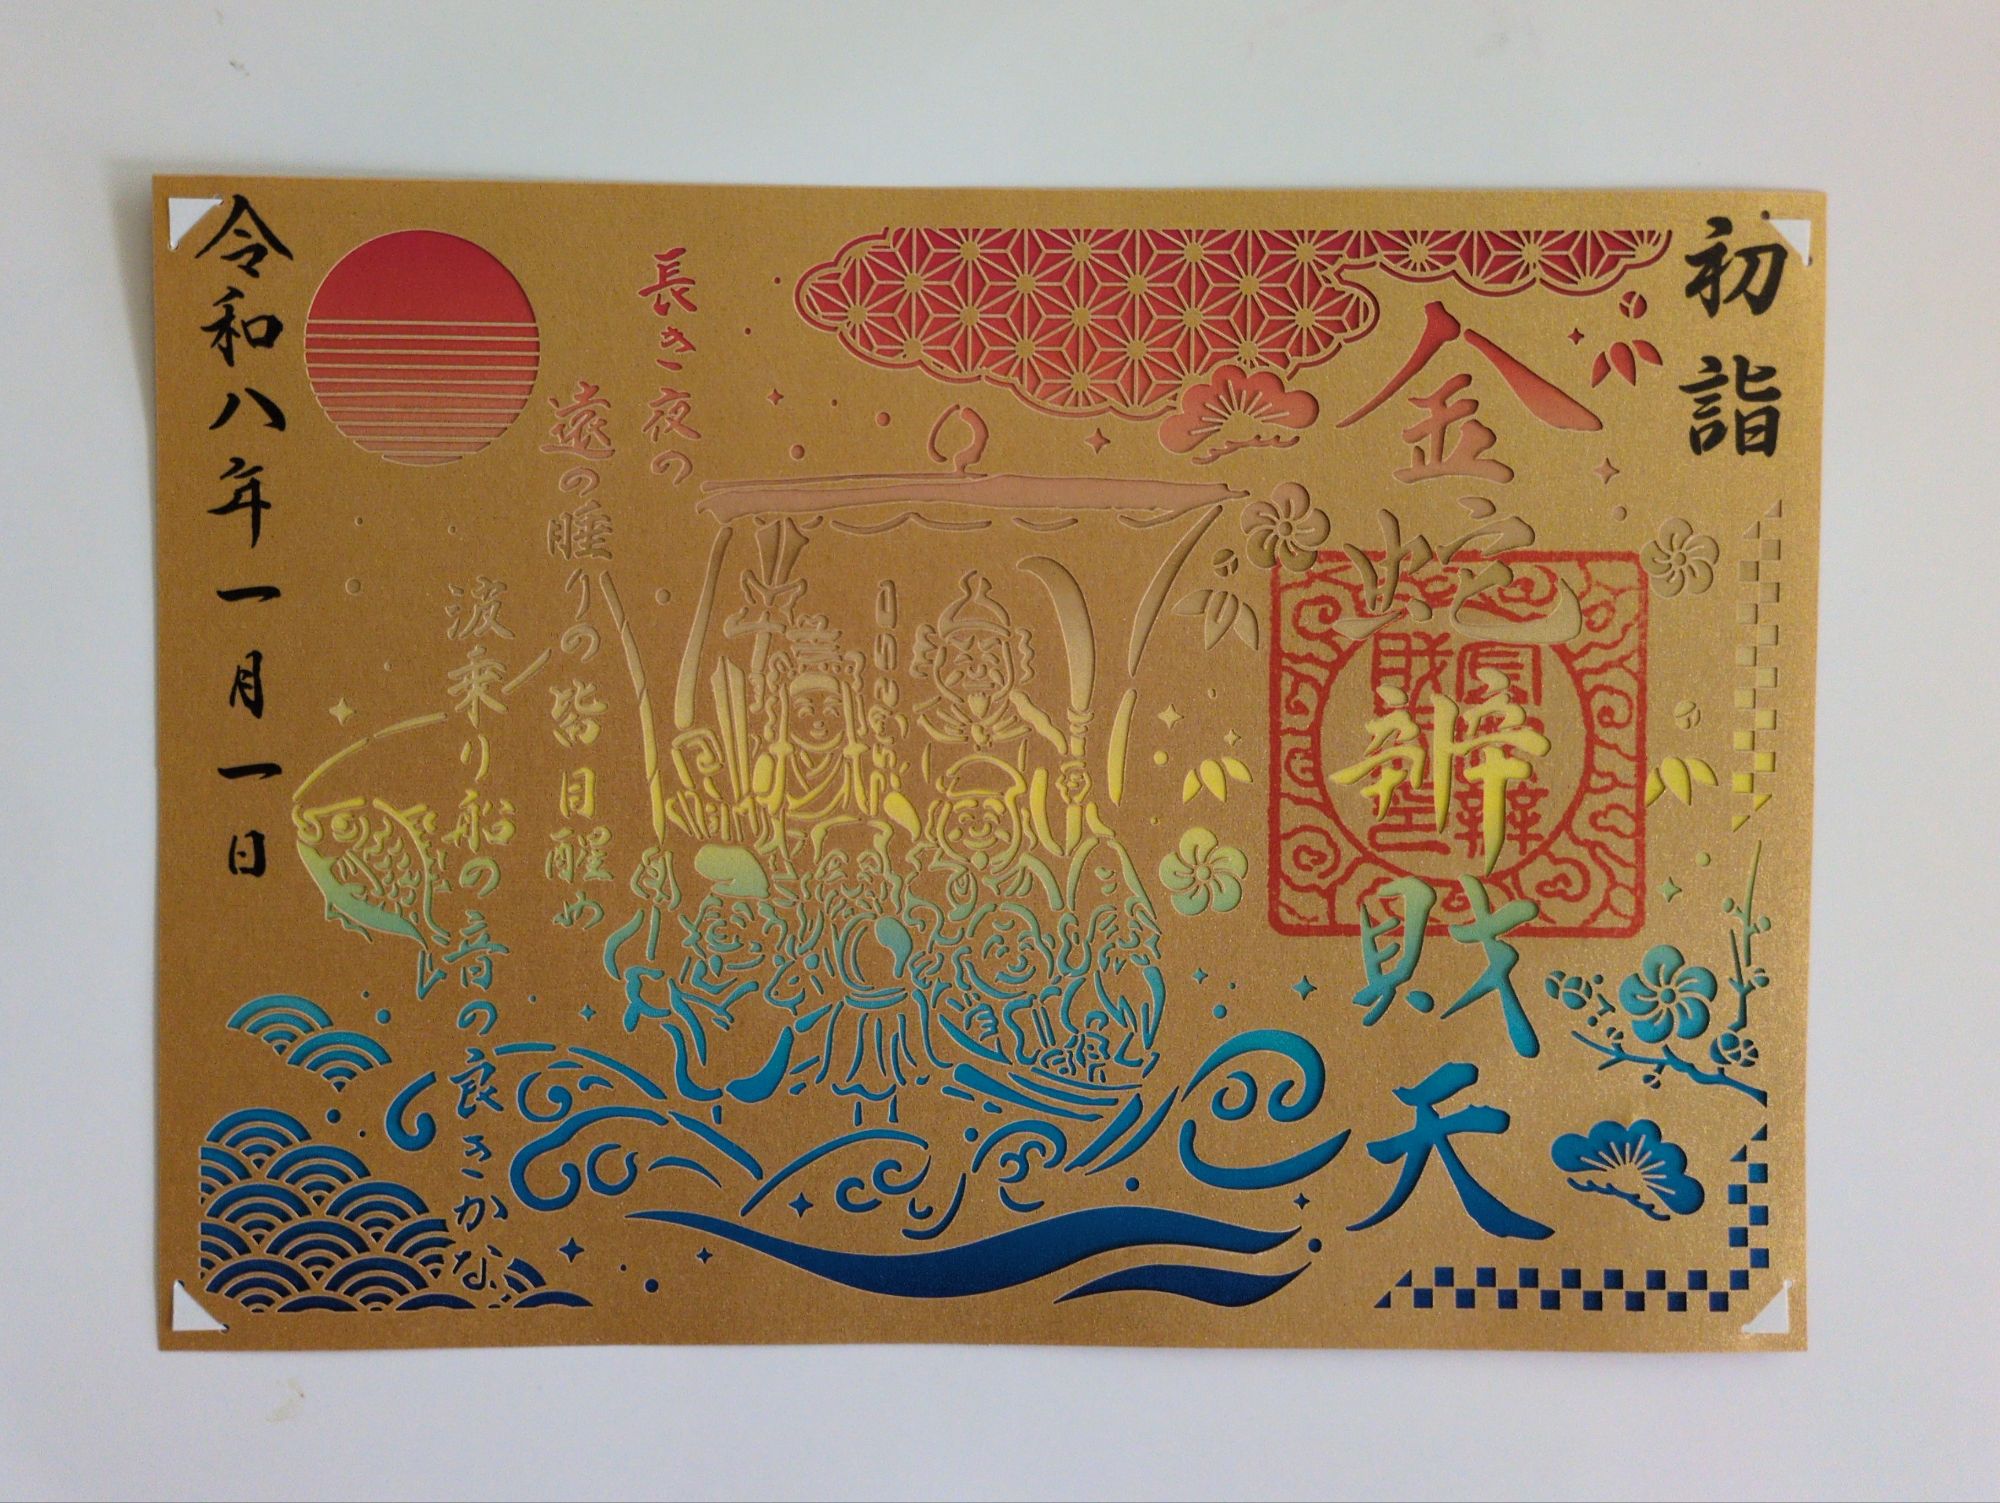 初詣
金蛇辨財天
長き夜の
遠の睡りの皆目醒め
波乗り船の音の良きかな
令和八年一月一日